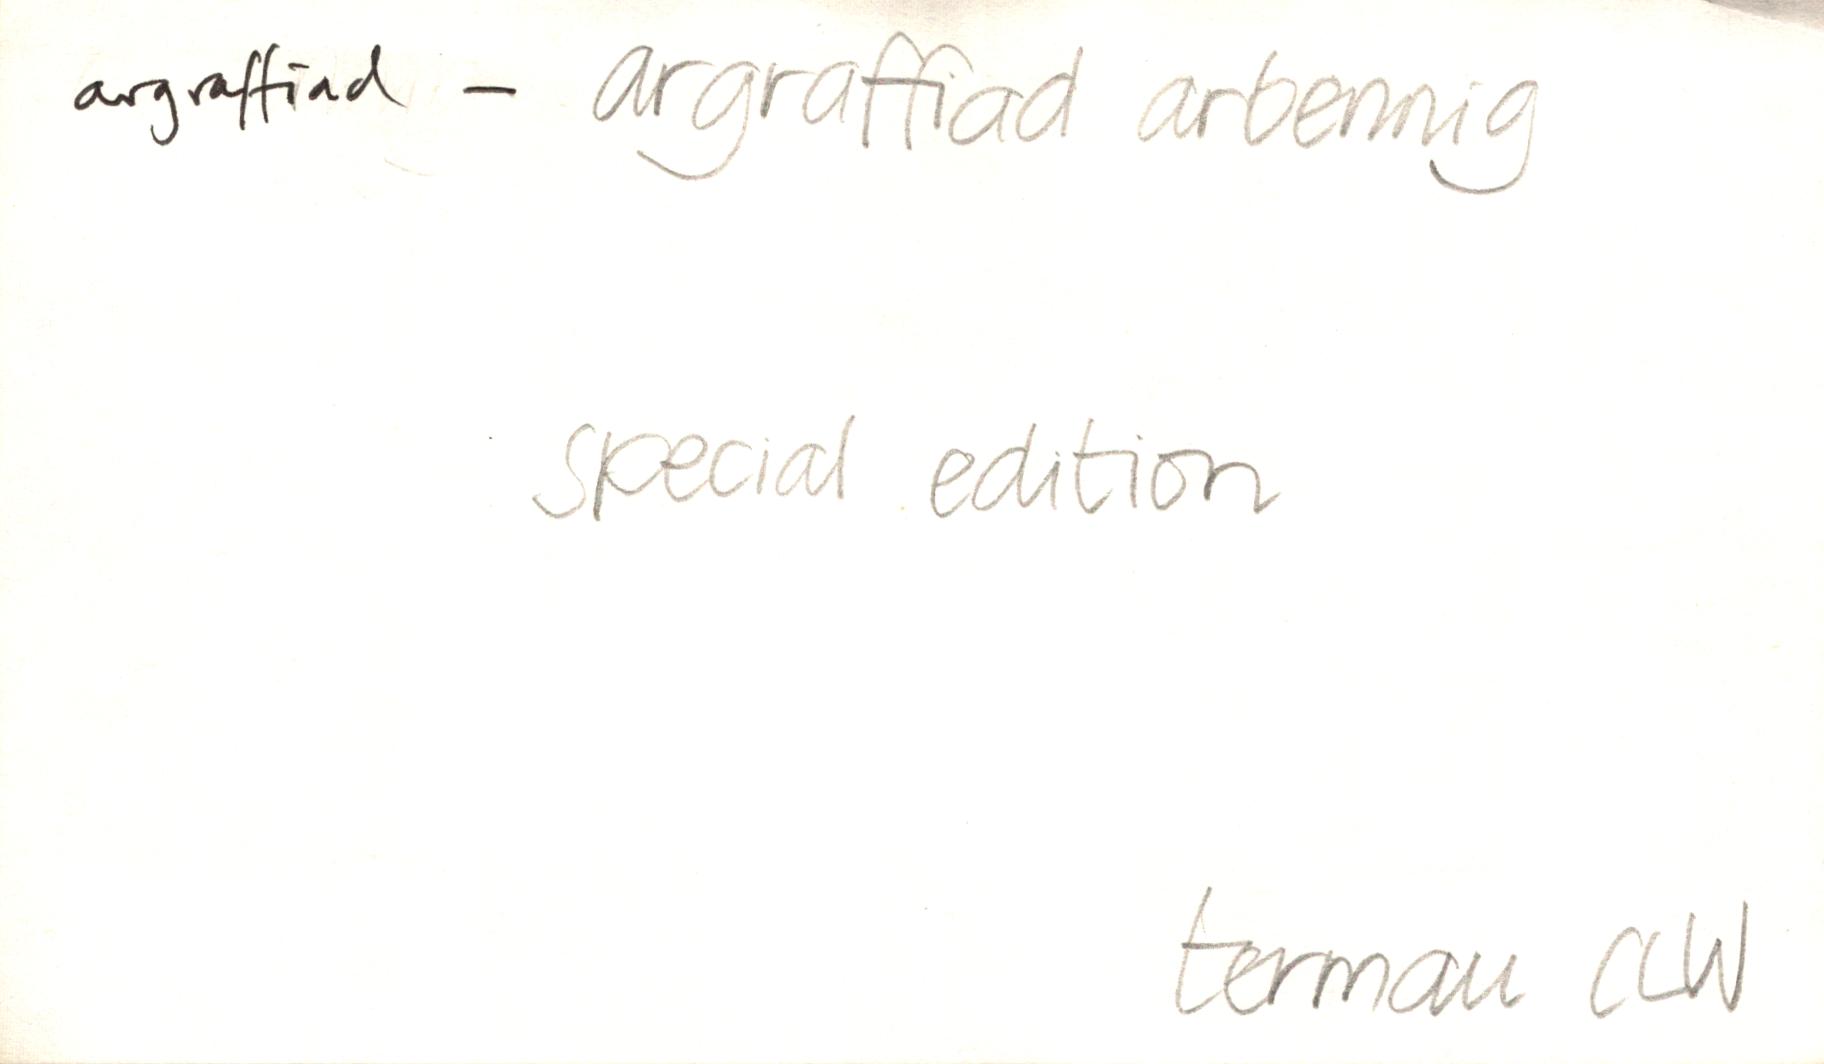 argraffiad – argraffiad arbennig
special edition
termau CLlW